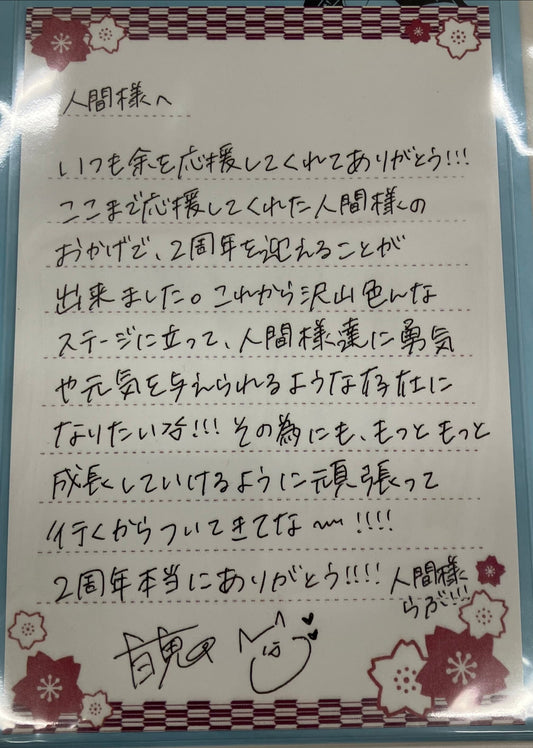 人間様へ
いつも余を応援してくれてありがとう!!!
ここまで応援してくれた人間様の
おかげで、2周年を迎えることが
出来ました。これから沢山色んな
ステージに立って、人間様達に勇気
や元気を与えられるような存在に
なりたいぞ!!! その為にも、もっともっと
成長していけるように頑張って
行くからついてきてな〜!!!!
2周年本当にありがとう!!!! 人間様
らぶ!!!
百鬼